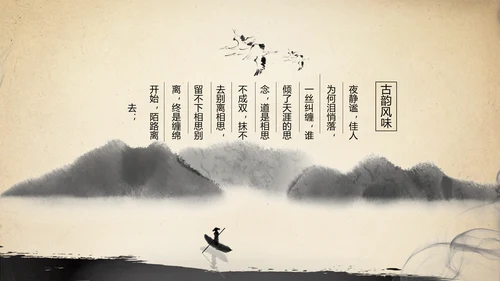 古韵风味
夜静谧，佳人
为何泪悄落，
一丝纠缠，谁
倾了天涯的思
念，道是相思
不成双，抹不
去别离相思，
留不下相思别
离，终是缠绵
开始，陌路离
去；